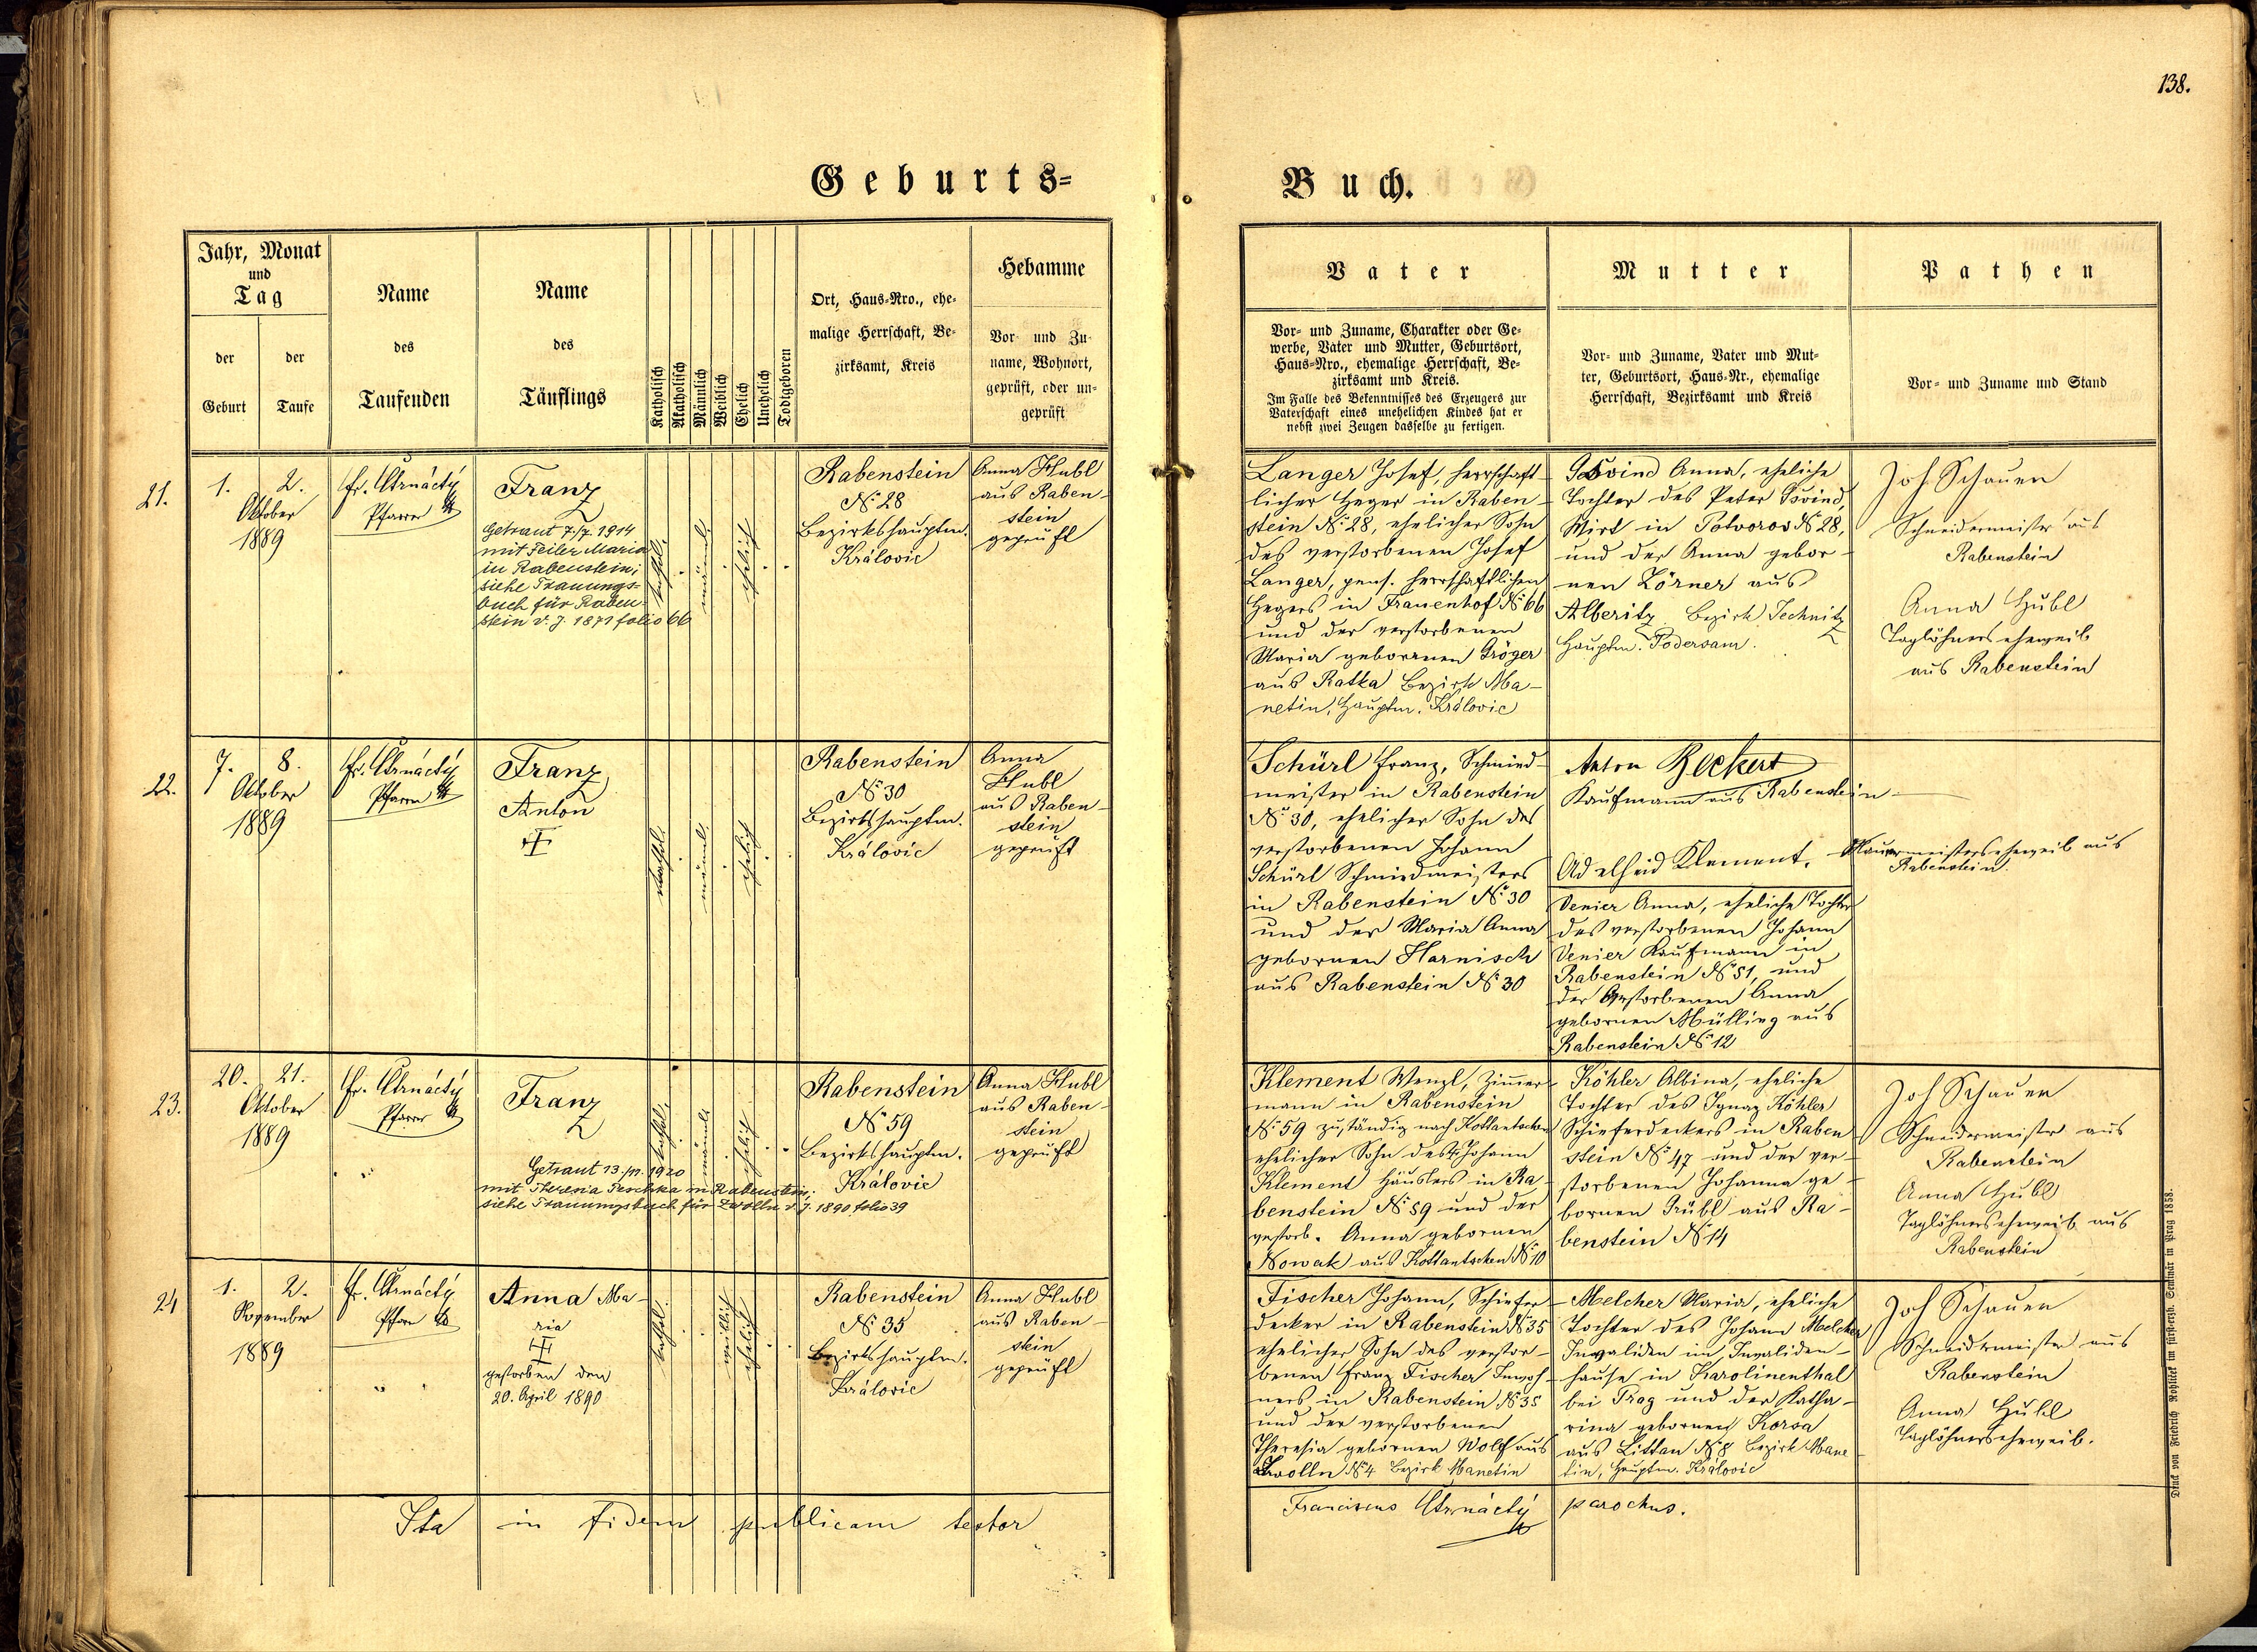 138.
Geburts=
Buch.
Jahr, Monat
und
Tag
der
Geburt
der
Taufe
Name
des
Taufenden
Name
des
Täuflings
Katholisch
Akatholisch
Männlich
Weiblich
Ehelich
Unehelich
Todtgeboren
Ort, Haus-Nro., ehe-
malige Herrschaft, Be-
zirksamt, Kreis
Hebamme
Vor- und Zu-
name, Wohnort,
geprüft, oder un-
geprüft
Vater
Vor- und Zuname, Charakter oder Ge-
werbe, Vater und Mutter, Geburtsort,
Haus-Nro., ehemalige Herrschaft, Be-
zirksamt und Kreis.
Im Falle des Bekenntnisses des Erzeugers zur
Vaterschaft eines unehelichen Kindes hat er
nebst zwei Zeugen dasselbe zu fertigen.
Mutter
Vor- und Zuname, Vater und Mut-
ter, Geburtsort, Haus-Nr., ehemalige
Herrschaft, Bezirksamt und Kreis
Pathen
Vor- und Zuname und Stand
21.
1. 2.
Oktober
1889
Fr. Ctrnáctý
Pfarrer
Franz
Getraut 7/7. 1914
mit Feiler Maria
in Rabenstein;
siehe Trauungs-
buch für Raben-
stein v. J. 1871 folio 66
kathol.
männl.
ehelich
Rabenstein
No 28
Bezirkshauptm.
Královic
Anna Hubl
aus Raben-
stein
geprüft
Langer Josef, herrschaft-
licher Heger in Raben-
stein No 28, ehelicher Sohn
des verstorbenen Josef
Langer, pens. herrschaftlichen
Hegers in Frauenhof No 66
und der verstorbenen
Maria gebornen Gröger
aus Ratka Bezirk Ma-
netin, Hauptm. Královic
Anna, eheliche
Tochter des Peter
Wirt in Potvorov No 28,
und der Anna gebor-
nen Zörner aus
Alberitz Bezirk Jechnitz
Hauptm. Podersam.
Joh Schauer
Schneidermeister aus
Rabenstein
Anna Hubl
Taglöhnerseheweib
aus Rabenstein
22.
7. 8.
Oktober
1889
Fr. Ctrnáctý
Pfarrer
Franz
Anton
kathol.
männl.
ehelich
Rabenstein
No 30
Bezirkshauptm.
Královic
Anna
Hubl
aus Raben-
stein
geprüft
Schürl Franz, Schmied-
meister in Rabenstein
No 30, ehelicher Sohn des
verstorbenen Johann
Schürl Schmiedmeisters
in Rabenstein No 30
und der Maria Anna
gebornen Harnisch
aus Rabenstein No 30
Anton Beckert
Kaufmann aus Rabenstein
Adelheid Klement, Maurermeisterseheweib aus
Rabenstein
Venier Anna, eheliche Tochter
des verstorbenen Johann
Venier Kaufmann in
Rabenstein No 51, und
der verstorbenen Anna
gebornen Mülling aus
Rabenstein No 12
23.
20. 21.
Oktober
1889
Fr. Ctrnáctý
Pfarrer
Franz
Getraut 13./11. 1920
mit Theresia Peschka in Rabenstein;
siehe Trauungsbuch für Zwolln v. J. 1890 folio 39
kathol.
männl.
ehelich
Rabenstein
No 59
Bezirkshauptm.
Královic
Anna Hubl
aus Raben-
stein
geprüft
Klement Wenzl, Zimmer-
mann in Rabenstein
No 59 zuständig nach Kottantschen
ehelicher Sohn des Johann
Klement Häuslers in Ra-
benstein No 59 und der
verstorb. Anna gebornen
Nowak aus Kottantschen No 10
Köhler Albina, eheliche
Tochter des Ignaz Köhler
Schieferdeckers in Raben-
stein No 47 und der ver-
storbenen Johanna ge-
bornen Grübl aus Ra-
benstein No 14
Joh Schauer
Schneidermeister aus
Rabenstein
Anna Hubl
Taglöhnerseheweib aus
Rabenstein
24
1. 2.
November
1889
Fr. Ctrnáctý
Pfarrer
Anna Ma-
ria
gestorben den
20. April 1890
kathol.
weiblich
ehelich
Rabenstein
No 35
Bezirkshauptm.
Královic
Anna Hubl
aus Raben-
stein
geprüft
Fischer Johann, Schiefer-
decker in Rabenstein No 35
ehelicher Sohn des verstor-
benen Franz Fischer Inwoh-
ners in Rabenstein No 35
und der verstorbenen
Theresia gebornen Wolf aus
Zwolln No 4 Bezirk Manetin
Melcher Maria, eheliche
Tochter des Johann Melcher
Invaliden im Invaliden-
hause in Karolinenthal
bei Prag und der Katha-
rina gebornen Korsa
aus Littau No 8 Bezirk Mane-
tin, Hauptm. Královic
Joh Schauer
Schneidermeister aus
Rabenstein
Anna Hubl
Taglöhnerseheweib.
Ita in fidem publicam testor
Franciscus Ctrnáctý parochus.
Druck von Friedrich Rohlicek im fürsterzb. Seminar in Prag 1858.